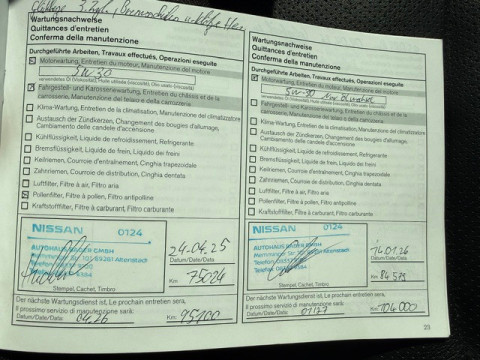 Wartungsnachweise
Quittances d'entretien
Conferma della manutenzione
Durchgeführte Arbeiten, Travaux effectués, Operazioni eseguite
Motorwartung, Entretien du moteur, Manutenzione del motore
5W30
verwendetes Öl (Viskosität), Huile utilisée (viscosité), Olio usato (viscosità)
Fahrgestell- und Karosseriewartung, Entretien du châssis et de la
carrosserie, Manutenzione del telaio e della carrozzeria
Klima-Wartung, Entretien de la climatisation, Manutenzione del climatizzatore
Austausch der Zündkerzen, Changement des bougies d'allumage,
Cambiamento delle candele d'accensione
Kühlflüssigkeit, Liquide de refroidissement, Refrigerante
Bremsflüssigkeit, Liquide de frein, Liquido dei freni
Keilriemen, Courroie d'entraînement, Cinghia trapezoidale
Zahnriemen, Courroie de distribution, Cinghia dentata
Luftfilter, Filtre à air, Filtro aria
Pollenfilter, Filtre à pollen, Filtro antipolline
Kraftstofffilter, Filtre à carburant, Filtro carburante
NISSAN 0124
24.04.25
Datum/Date/Data
75024
Km:
Stempel, Cachet, Timbro
Der nächste Wartungsdienst ist, Le prochain entretien sera,
Il prossimo servizio di manutenzione sarà:
Datum/Date/Data: 04.26 Km: 95100
Wartungsnachweise
Quittances d'entretien
Conferma della manutenzione
Durchgeführte Arbeiten, Travaux effectués, Operazioni eseguite
Motorwartung, Entretien du moteur, Manutenzione del motore
verwendetes Öl (Viskosität), Huile utilisée (viscosité), Olio usato (viscosità)
Fahrgestell- und Karosseriewartung, Entretien du châssis et de la
carrosserie, Manutenzione del telaio e della carrozzeria
Klima-Wartung, Entretien de la climatisation, Manutenzione del climatizzatore
Austausch der Zündkerzen, Changement des bougies d'allumage,
Cambiamento delle candele d'accensione
Kühlflüssigkeit, Liquide de refroidissement, Refrigerante
Bremsflüssigkeit, Liquide de frein, Liquido dei freni
Keilriemen, Courroie d'entraînement, Cinghia trapezoidale
Zahnriemen, Courroie de distribution, Cinghia dentata
Luftfilter, Filtre à air, Filtro aria
Pollenfilter, Filtre à pollen, Filtro antipolline
Kraftstofffilter, Filtre à carburant, Filtro carburante
NISSAN 0124
14.01.26
Datum/Date/Data
Km: 84 575
Stempel, Cachet, Timbro
Der nächste Wartungsdienst ist, Le prochain entretien sera,
Il prossimo servizio di manutenzione sarà:
Datum/Date/Data: 01.27 Km: 104 000
23